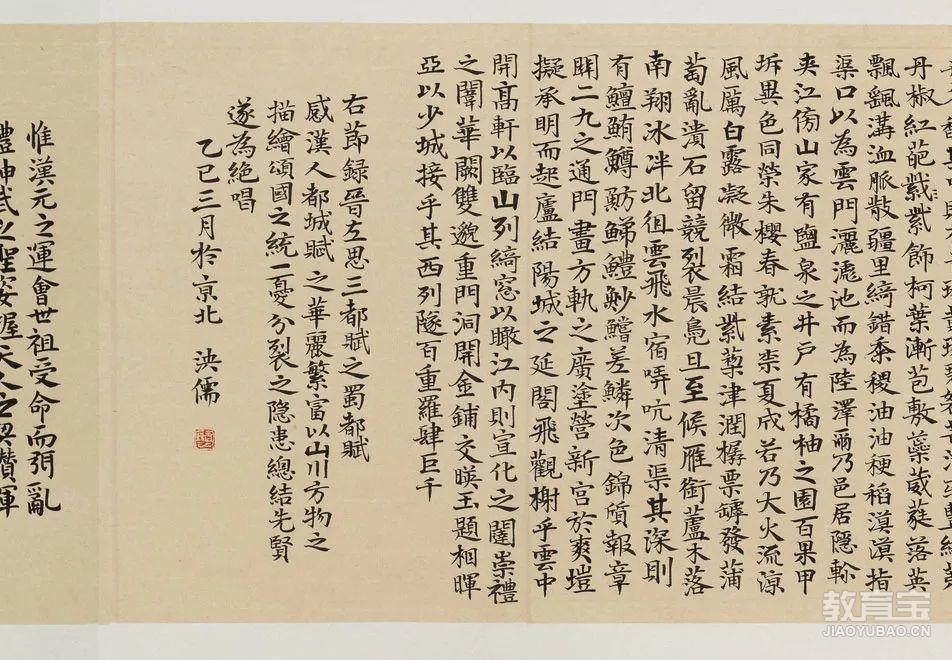 丹椒紅葩紫飾柯葉漸苞敷蘂葳蕤落英
飄颻溝洫脈散疆里綺錯黍稷油油粳稻漠漠指
渠口以為雲門灑滮池而為陸澤爾乃邑居隱軫
夾江傍山家有鹽泉之井戶有橘柚之園百果甲
坼異色同榮朱櫻春就素柰夏成若乃大火流涼
風厲白露凝微霜結紫梨津潤樼栗罅發蒲
萄亂潰石留競裂晨鳧旦至候雁銜蘆木落
南翔冰泮北徂雲飛水宿哢吭清渠其深則
有鱣鮪鱒魴鮷鱧魦鱨差鱗次色錦質報章
闢二九之通門畫方軌之廣塗營新宮於爽塏
擬承明而起廬結陽城之延閣飛觀榭乎雲中
開高軒以臨山列綺窓以瞰江內則宣化之闥崇禮
之闈華闕雙邈重門洞開金鋪交暎玉題相暉
亞以少城接乎其西列隧百重羅肆巨千
右節録晉左思三都賦之蜀都賦
感漢人都城賦之華麗繁富以山川方物之
描繪頌國之統一憂分裂之隐患總結先賢
遂為絕唱
乙巳三月於京北 泱儒
惟漢元之運會世祖受命而弭亂
體神武之聖姿握天人之契讚
教育宝
JIAOYUBAO.CN